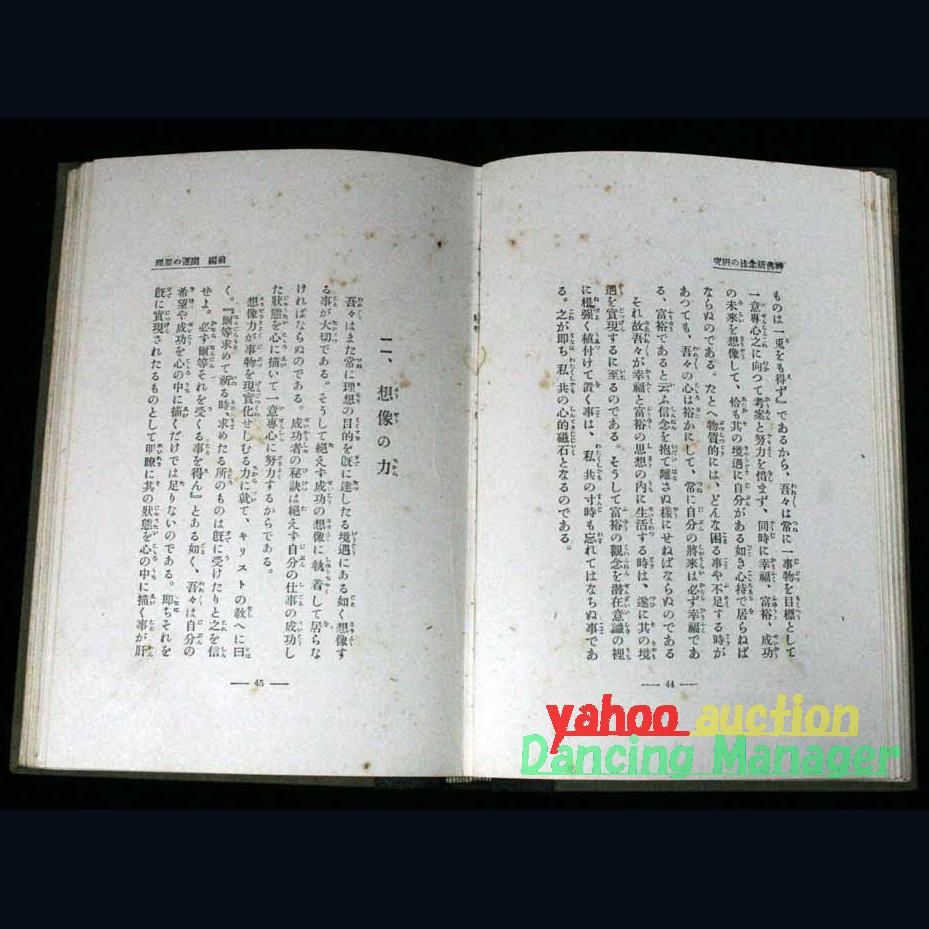 神佛祈念法の研究
ものは一兎をも得ず』であるから、吾々は常に一事物を目標として
一意專心之に向つて考案と努力を惜まず、同時に幸福、富裕、成功
の未來を想像して、恰も其の境遇に自分がある如き心持で居らねば
ならぬのである。たとへ物質的には、どんな困る事や不足する時が
あつても、吾々の心は裕かにして、常に自分の將來は必ず幸福であ
る、富裕であると云ふ信念を抱て離さぬ樣にせねばならぬのである
それ故吾々が幸福と富裕の思想の内に生活する時は、遂に其の境
遇を實現するに至るのである。そうして富裕の觀念を潜在意識の裡
に根强く植付けて置く事は、私共の寸時も忘れてはならぬ事であ
る。之が即ち私共の心的磁石となるのである。
— 44 —
前編 開運の原理
二、想像の力
吾々はまた常に理想の目的を旣に達したる境遇にある如く想像す
る事が大切である。そうして絕えず成功の想像に執着して居らな
ければならぬのである。成功者の秘訣は絕えず自分の仕事の成功し
た狀態を心に描いて一意專心に努力するからである。
想像力が事物を現實化せしむる力に就て、キリストの敎へに曰
く。『爾等求めて祈る時、求めたる所のものは旣に受けたりと之を信
せよ。必ず爾等それを受くる事を得ん』とある如く、吾々は自分の
希望や成功を心の中に描くだけでは足りないのである。即ちそれを
旣に實現されたるものとして明瞭に其の狀態を心の中に描く事が肝
— 45 —
yahoo auction
Dancing Manager